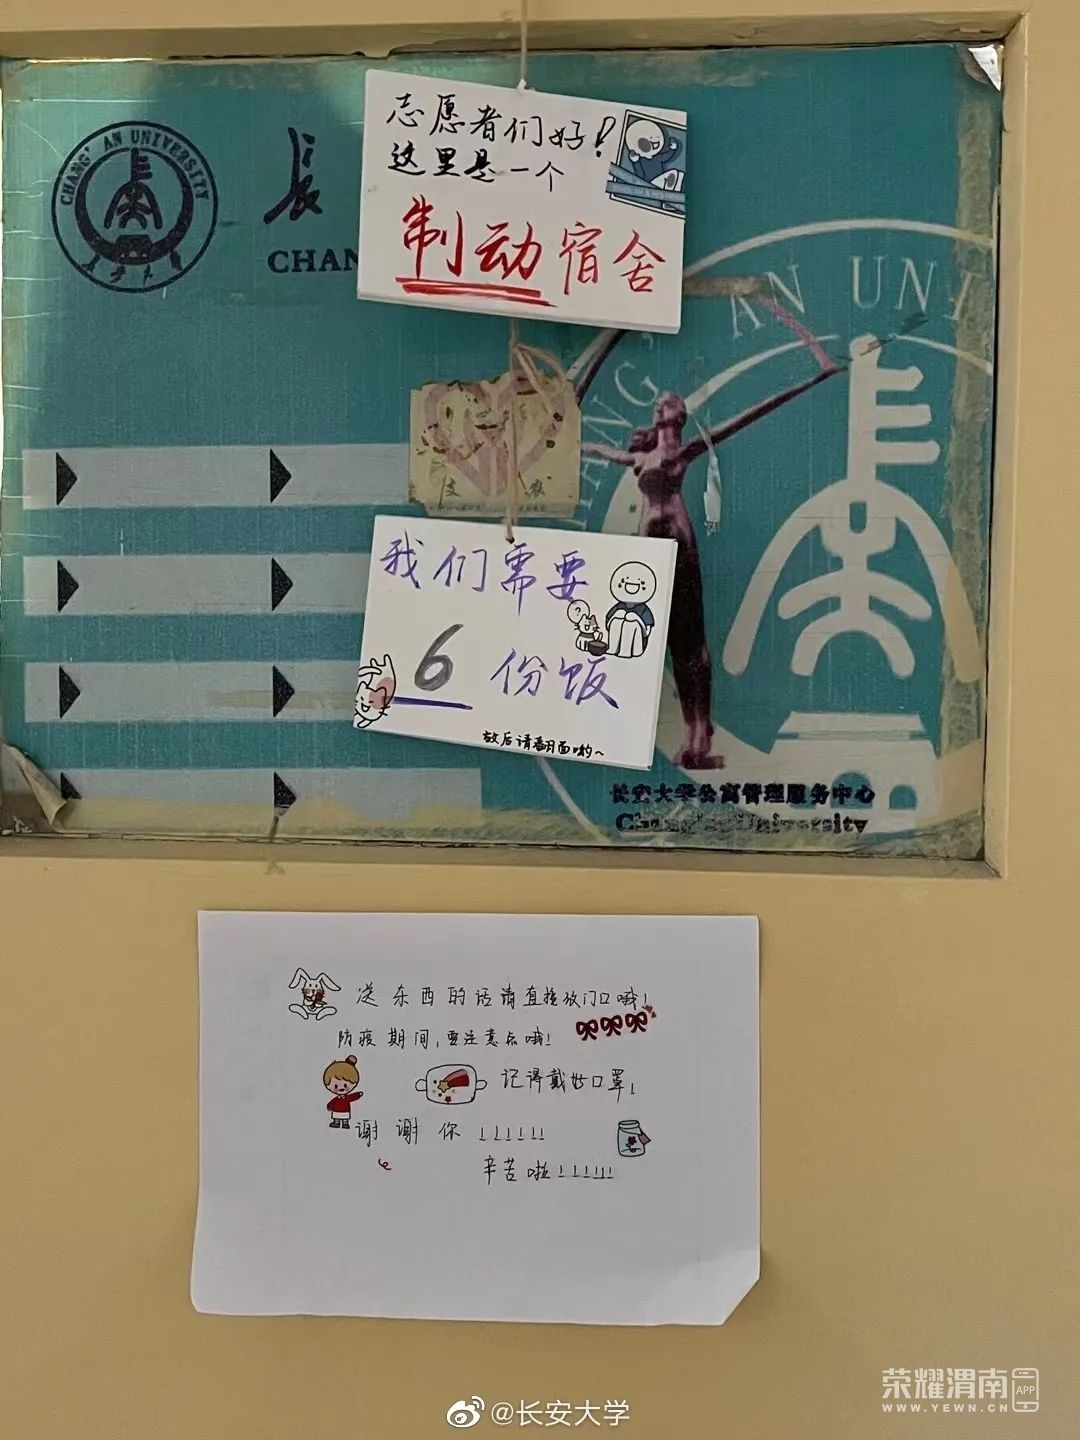 CHANG'AN UNIVERSITY
長
CHAN
志愿者们好!
这里是一个
制动宿舍
AN UNI
我们需要
6 份饭
放后请翻面哟~
长安大学公寓管理服务中心
Chang'an University
送东西的话请直接放门口哦!
防疫期间,要注意点哦!
记得戴好口罩!
谢谢你!!!!!!
辛苦啦!!!!!!
荣耀渭南APP
WWW.YEWN.CN
@长安大学